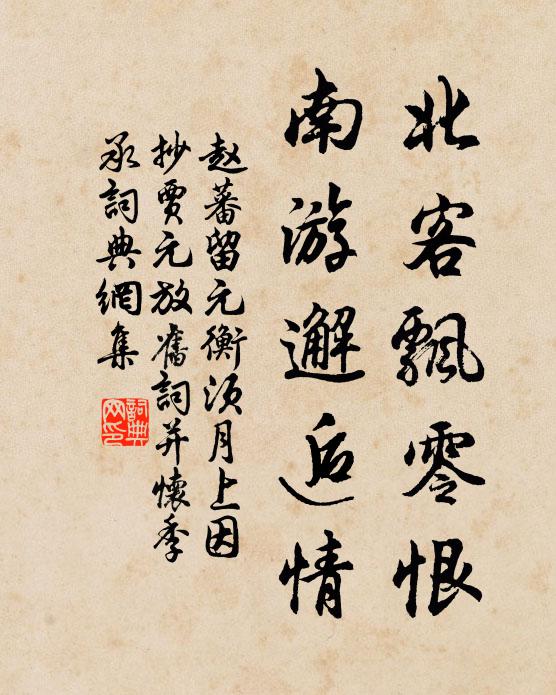 北客飄零恨
南游邂逅情
赵蕃留元衡須月上因
抄賈元放舊詞并懷季
承詞典網集
詞典
网印